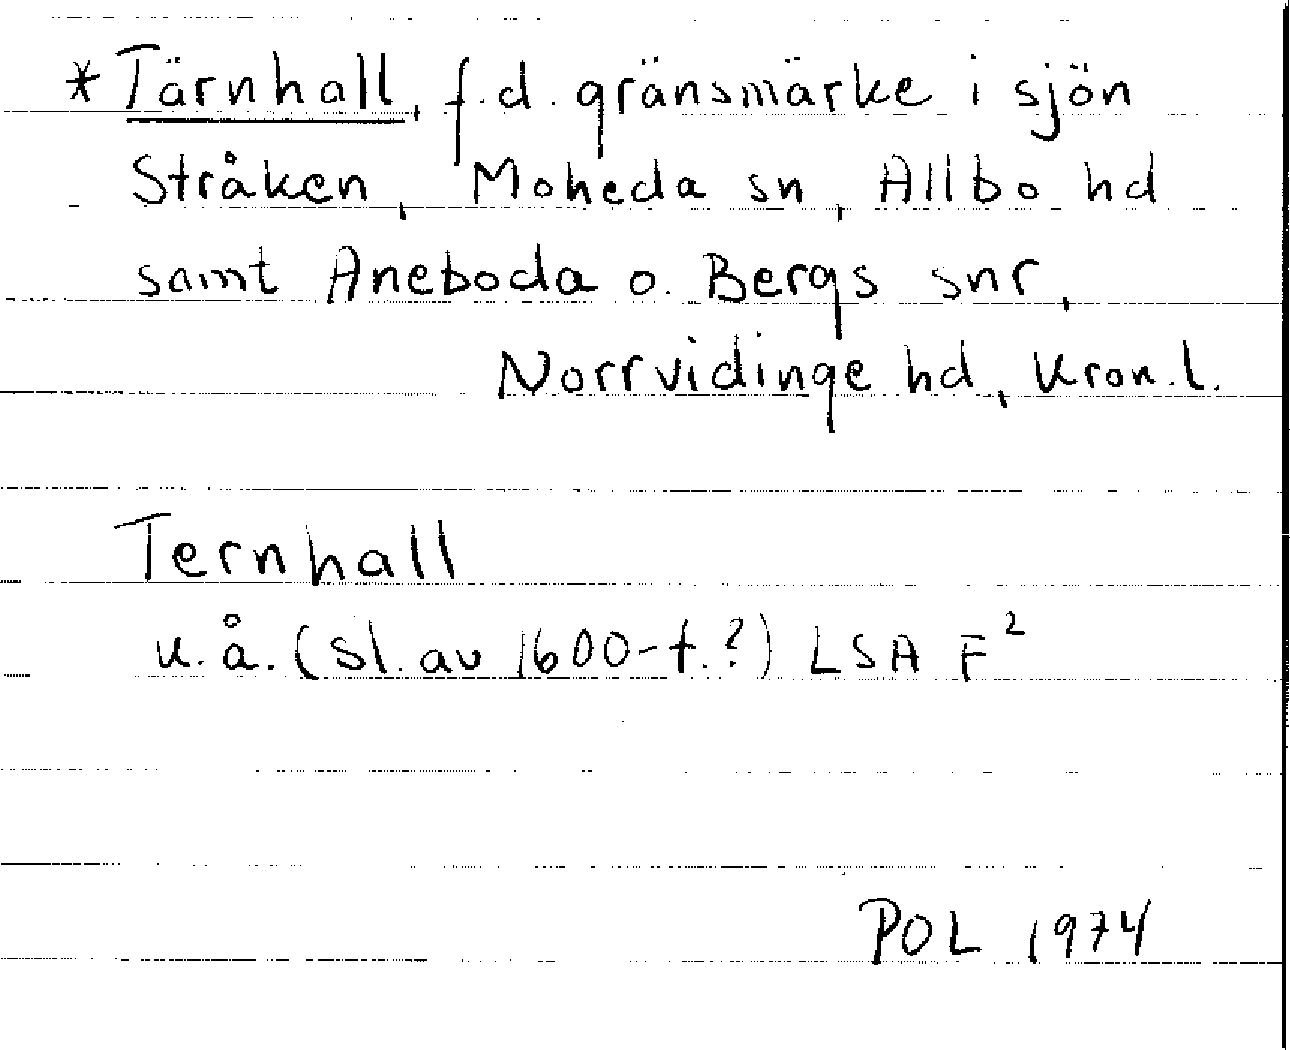 *Tärnhall, f.d. gränsmärke i sjön
Stråken, Moheda sn, Allbo hd
samt Aneboda o. Bergs snr,
Norrvidinge hd, Kron.l.
Ternhall
u.å. (sl. av 1600-t.?) LSA F²
POL 1974